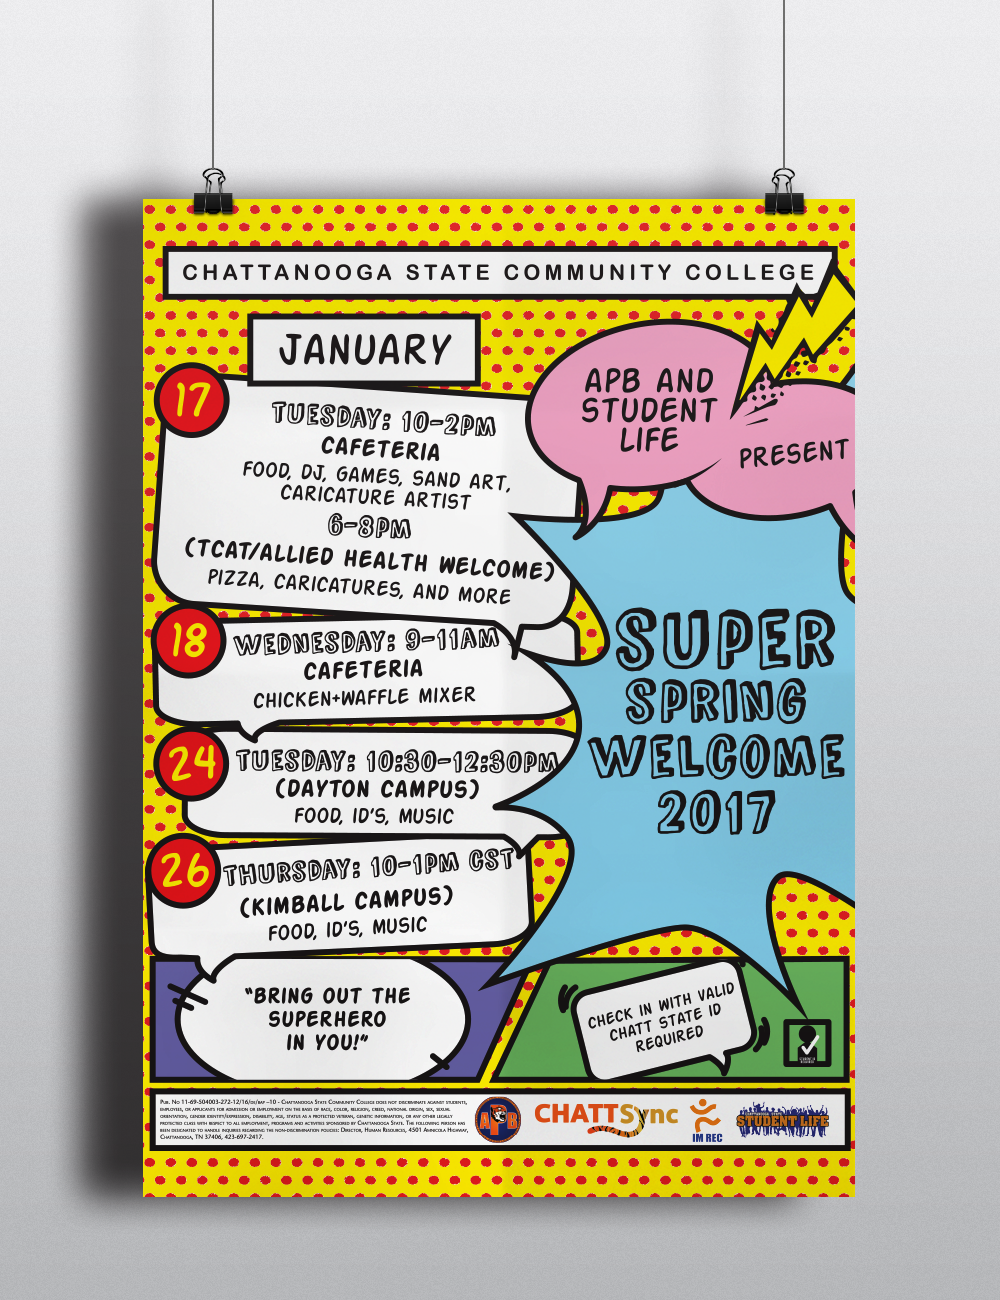 CHATTANOOGA STATE COMMUNITY COLLEGE
JANUARY
17
TUESDAY: 10-2PM
CAFETERIA
FOOD, DJ, GAMES, SAND ART,
CARICATURE ARTIST
6-8PM
(TCAT/ALLIED HEALTH WELCOME)
PIZZA, CARICATURES, AND MORE
18
WEDNESDAY: 9-11AM
CAFETERIA
CHICKEN+WAFFLE MIXER
24
TUESDAY: 10:30-12:30PM
(DAYTON CAMPUS)
FOOD, ID'S, MUSIC
26
THURSDAY: 10-1PM CST
(KIMBALL CAMPUS)
FOOD, ID'S, MUSIC
APB AND
STUDENT
LIFE
PRESENT
SUPER
SPRING
WELCOME
2017
"BRING OUT THE
SUPERHERO
IN YOU!"
CHECK IN WITH VALID
CHATT STATE ID
REQUIRED
Pub. No 11-69-504003-272-12/16/ - Chattanooga State Community College does not discriminate against students,
employees, or applicants for admission or employment on the basis of race, color, religion, creed, national origin, sex, sexual
orientation, gender identity/expression, disability, age, status as a protected veteran, genetic information, or any other legally
protected class with respect to all employment, programs and activities sponsored by Chattanooga State. The following person has
been designated to handle inquiries regarding the non-discrimination policies: Director, Human Resources, 4501 Amnicola Highway,
Chattanooga, TN 37406, 423-697-2417.
APB
CHATTSync
IM REC
STUDENT LIFE